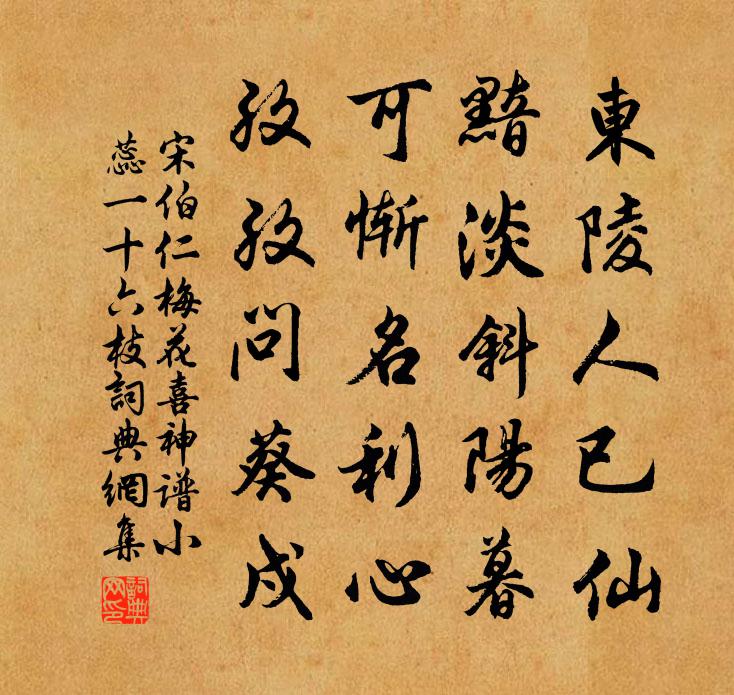 東陵人已仙
黯淡斜陽暮
可慚名利心
孜孜問葵戍
宋伯仁梅花喜神譜小
蕊一十六枝詞典網集
詞典网印